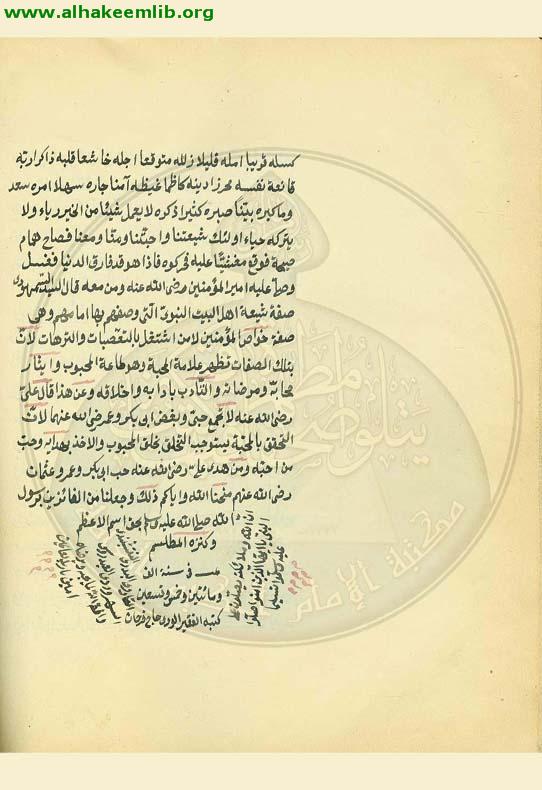 www.alhakeemlib.org
كسله قريبا امله قليلا زلله متوقعا اجله خاشعا قلبه ذاكرا ربه
قانعة نفسه محرزا دينه كاظما غيظه آمنا جاره سهلا امره سعد
وما كبره بيّنا صبره كثيرا ذكره لا يعمل شيئا من الخير رياء ولا
يتركه حياء اولئك شيعتنا واحبّتنا ومنّا ومعنا فصاح همام
صيحة فوقع مغشيّا عليه فحركوه فاذا هو قد فارق الدنيا فغسل
وصلى عليه امير المؤمنين رضى الله عنه ومن معه قال السيد السمهودى
صفة شيعة اهل البيت النبوىّ الّتى وصفهم بها امامهم وهى
صفة خواصّ المؤمنين لا من اشتغل بالتعصّبات والترهات لانّ
بتلك الصفات تظهر علامة المحبة وهو طاعة المحبوب وايثار
محابّه ومرضاته والتأدب بآدابه واخلاقه وعن هذا قال علىّ
رضى الله عنه لا يجمع حبّى وبغض ابى بكر وعمر رضى الله عنهما لانّ
التحقق بالمحبّة يستوجب التخلّق بخلق المحبوب والاخذ بهديه وحب
من احبّه ومن هدى علىّ رضى الله عنه حب ابى بكر وعمر وعثمان
رضى الله عنهم منحنا الله واياكم ذلك وجعلنا من الفائزين برسول
الله صلى الله عليه وسلم بحق اسم الاعظم
وكنزه المطلسم
فى سنة الف
ومائتين وخمس وتسعين
كتبه الفقير
ان الله وملائكته يصلون على
النبى يا ايها الذين آمنوا صلوا
عليه وسلموا تسليما